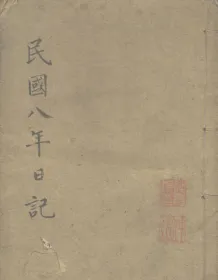 民國八年日記